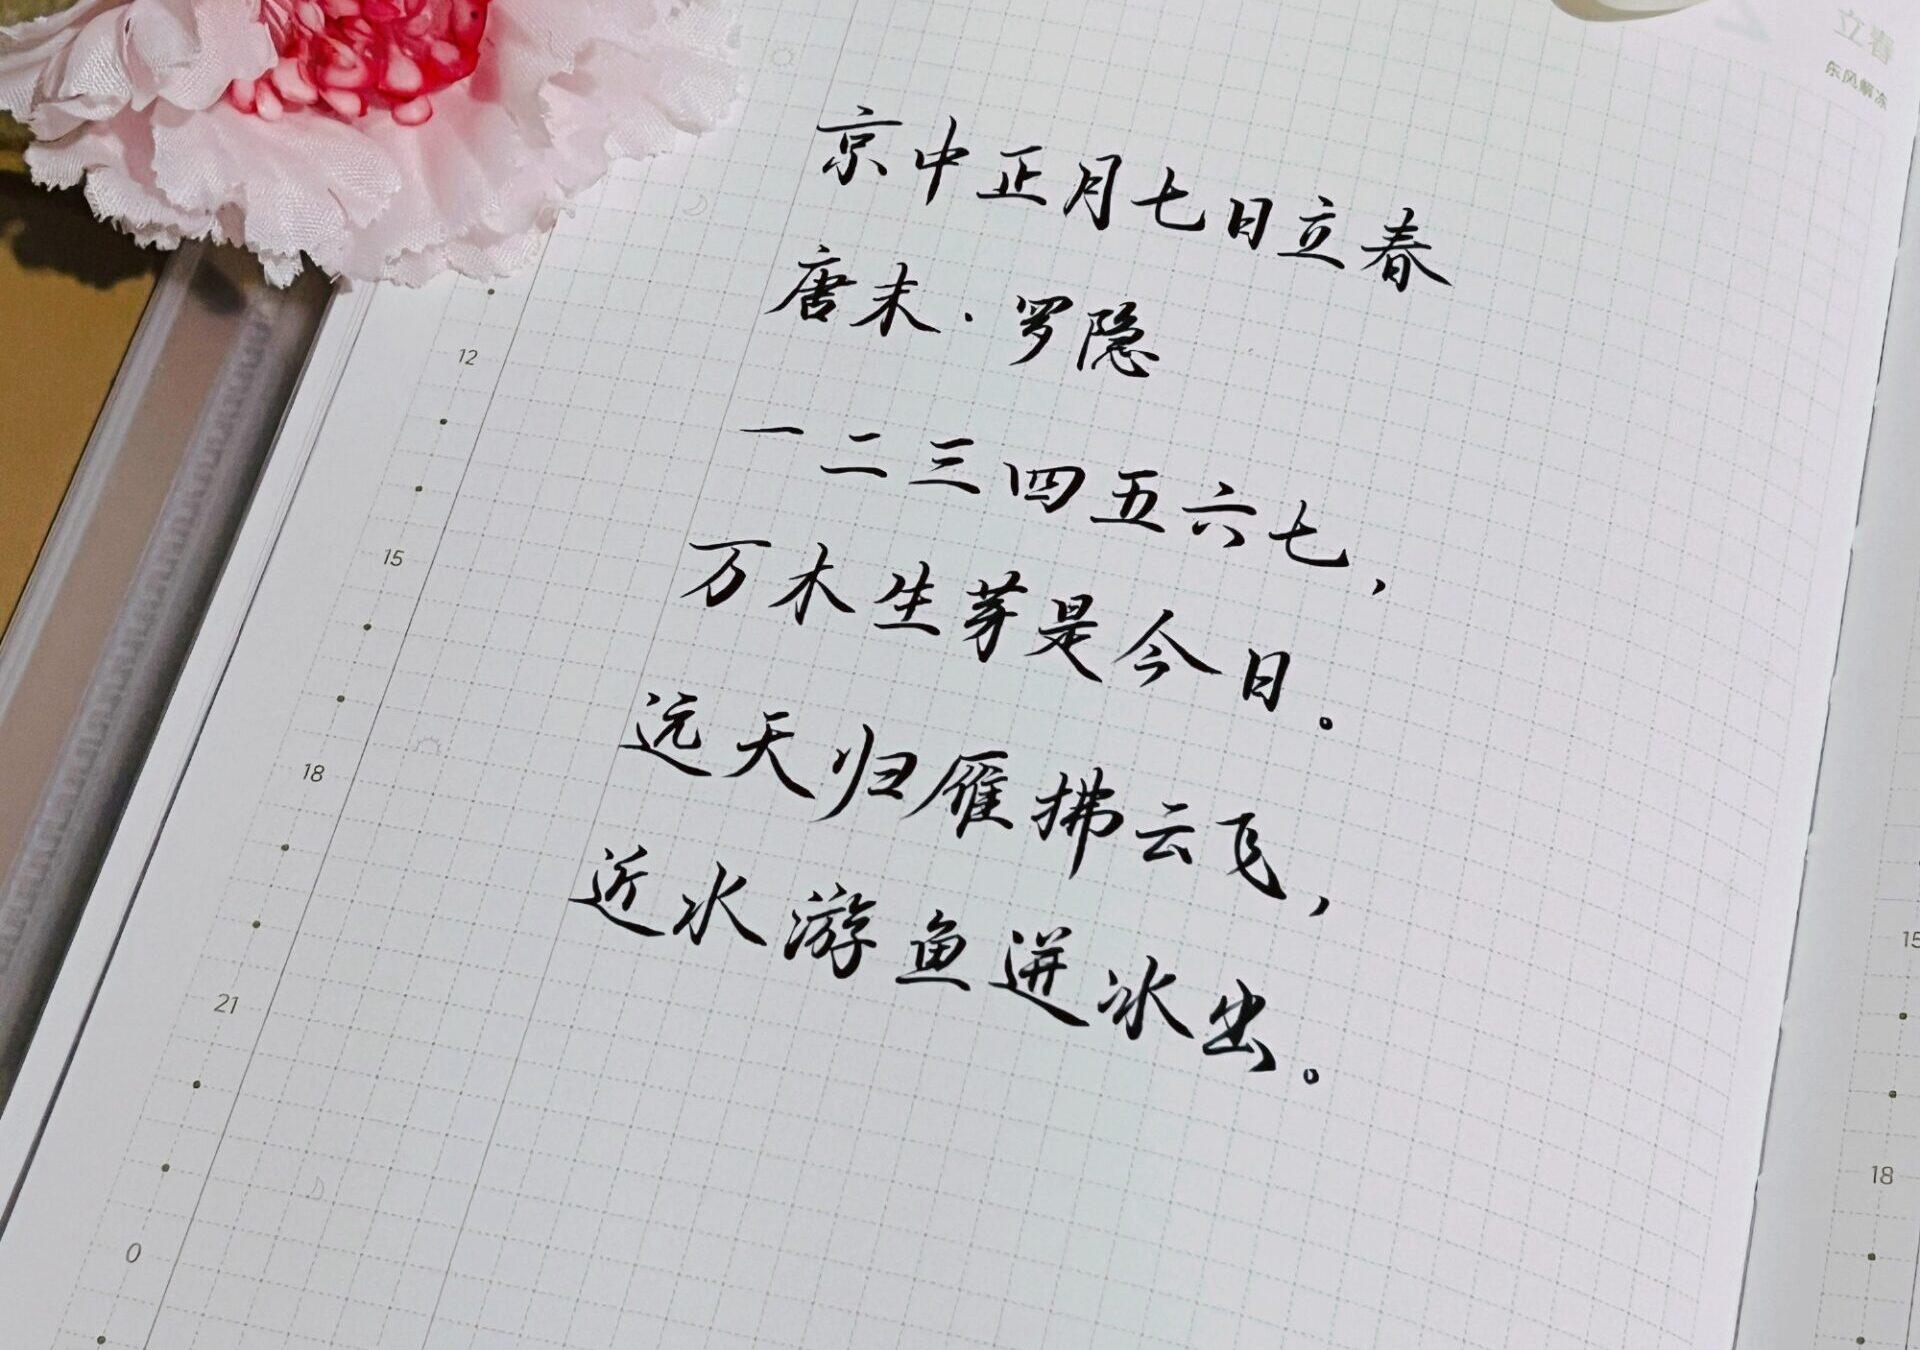 立春
东风解冻
京中正月七日立春
唐末·罗隐
一二三四五六七，
万木生芽是今日。
远天归雁拂云飞，
近水游鱼迸冰出。
12
15
18
21
0
15
18